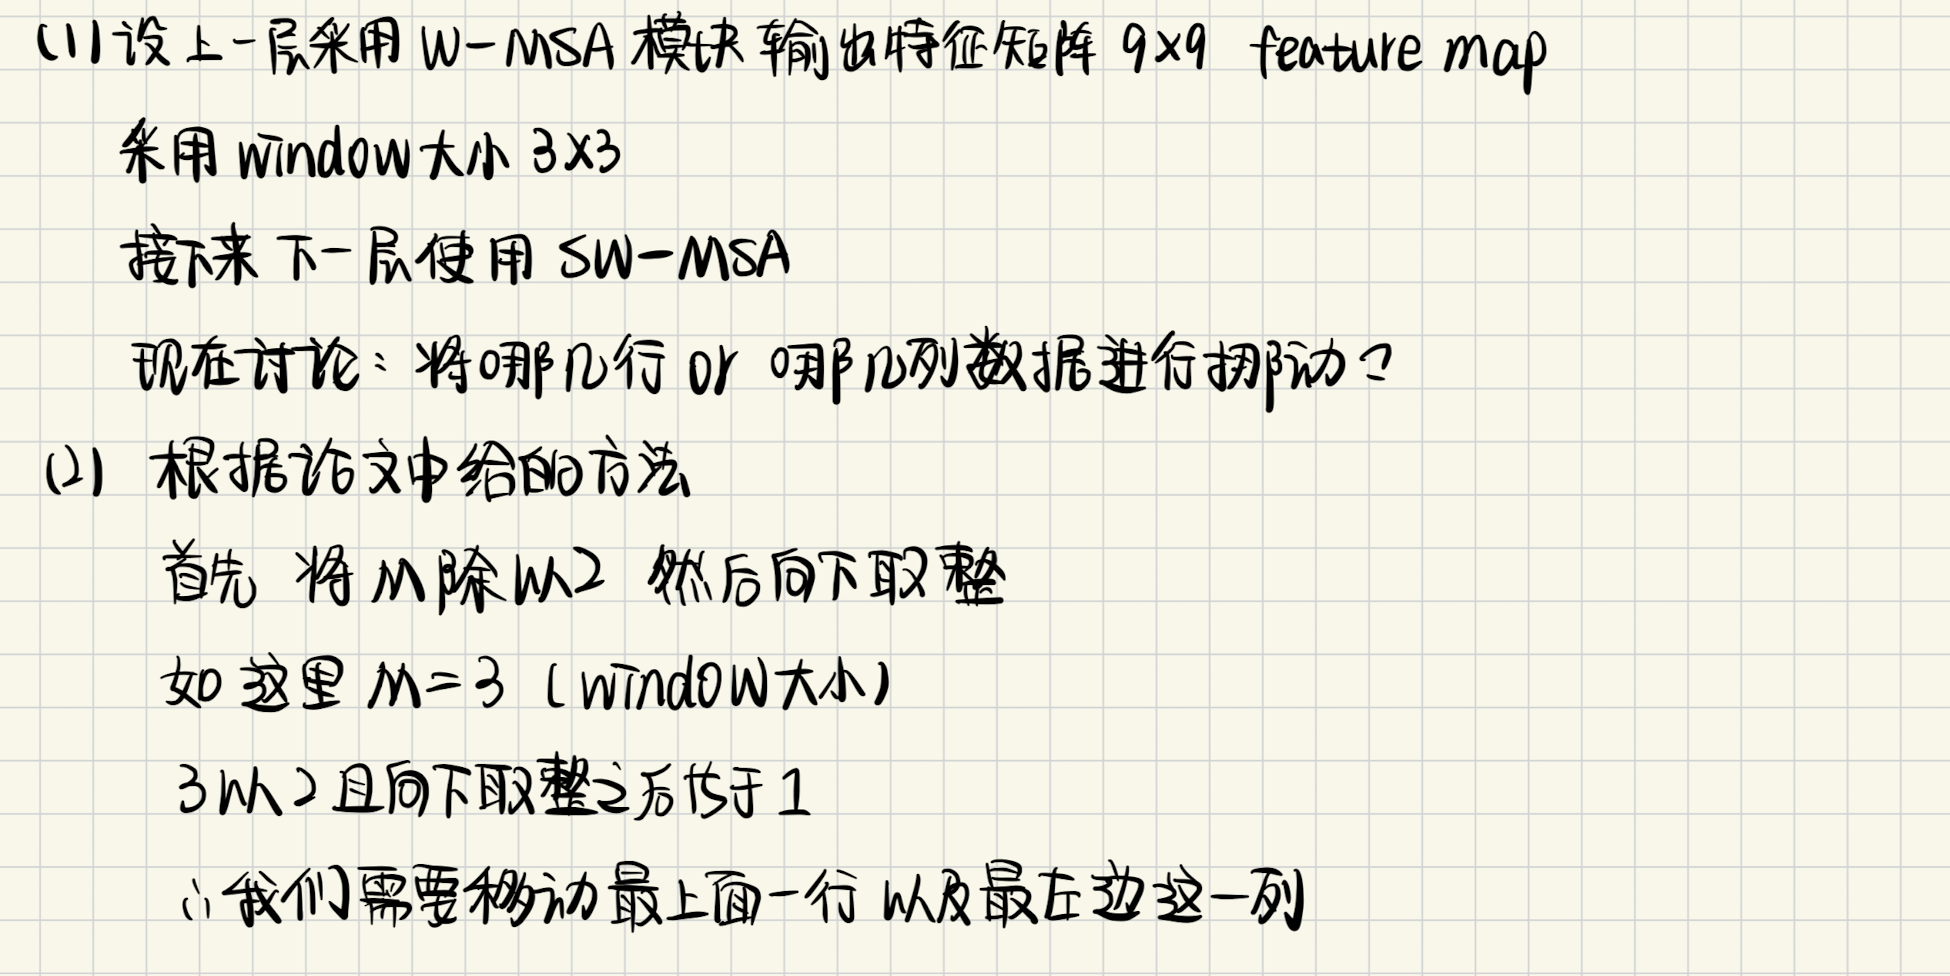 (1) 设上一层采用 W-MSA 模块 输出特征矩阵 9×9 feature map
采用 window 大小 3×3
接下来 下一层使用 SW-MSA
现在讨论：将哪几行 or 哪几列数据进行挪动？
(2) 根据论文中给的方法
首先 将 M 除以2 然后向下取整
如这里 M=3 (window大小)
3以2且向下取整之后 等于 1
∴我们需要移动最上面一行 以及最左边这一列